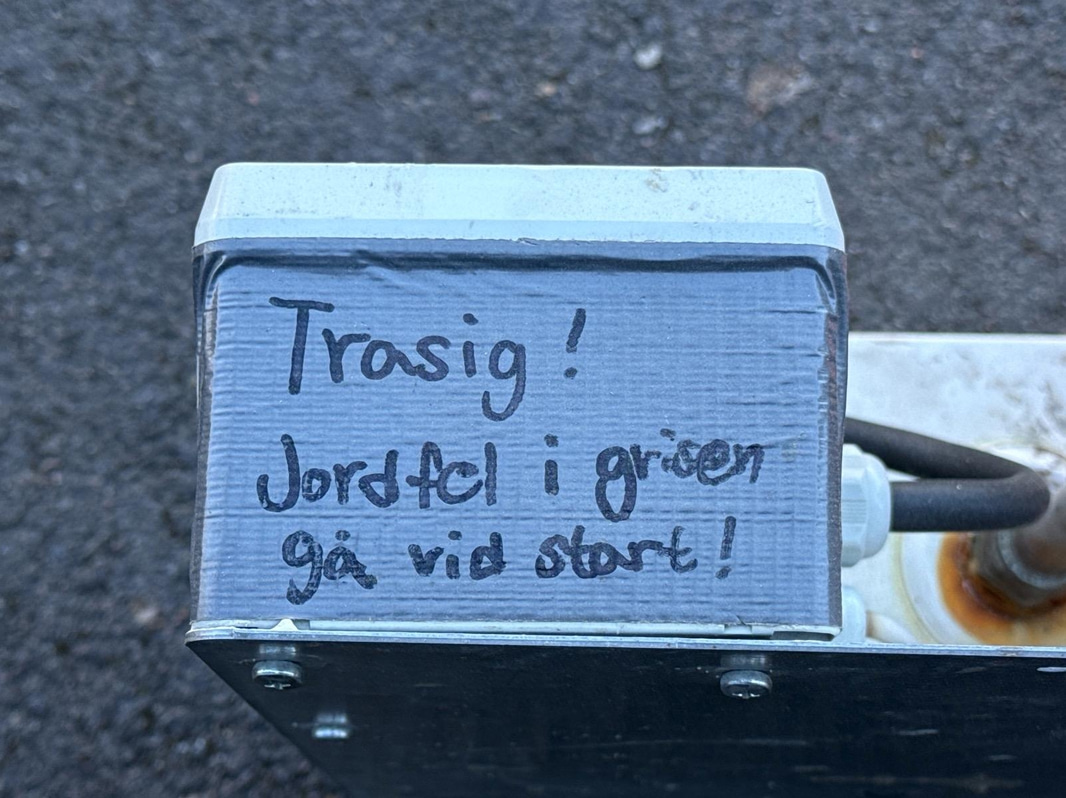 Trasig!
Jordfel i grisen
gå vid start!